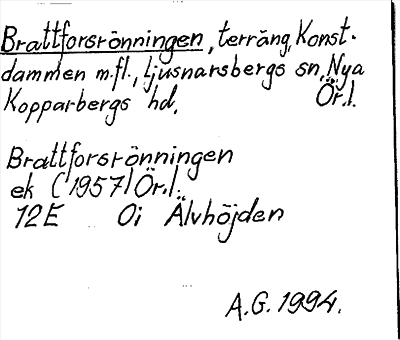 Brattforsrönningen, terräng, Konst-
dammen m.fl., Ljusnarsbergs sn, Nya
Kopparbergs hd, Ör.l.
Brattforsrönningen
ek (1957) Ör.l.
12E 0i Älvhöjden
A.G. 1994.